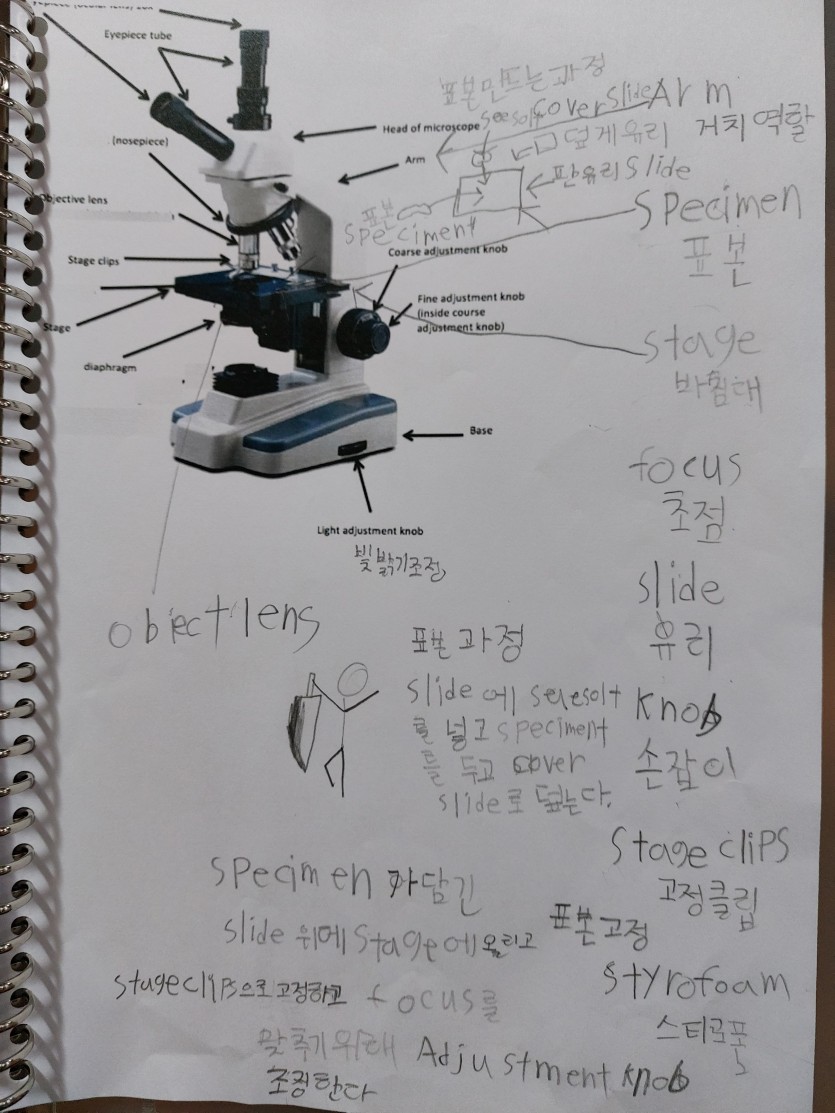 Eyepiece tube
표본만드는과정
cover slide
Arm
(nosepiece)
Head of microscope
덮게유리
거치역할
Arm
판유리 slide
objective lens
표본
speciment
specimen
표본
Stage clips
Coarse adjustment knob
Fine adjustment knob
(inside course
adjustment knob)
Stage
stage
바침대
diaphragm
Base
focus
초점
Light adjustment knob
빛밝기조정
slide
유리
object lens
표본과정
slide에
를 넣고 speciment
를 두고 cover
slide로 덮는다.
knob
손잡이
stage clips
고정클립
specimen 가담긴
slide 위에 stage에 올리고
표본고정
stageclips으로고정하고 focus를
styrofoam
스티로폼
맞추기위해 Adjustment knob
조정한다